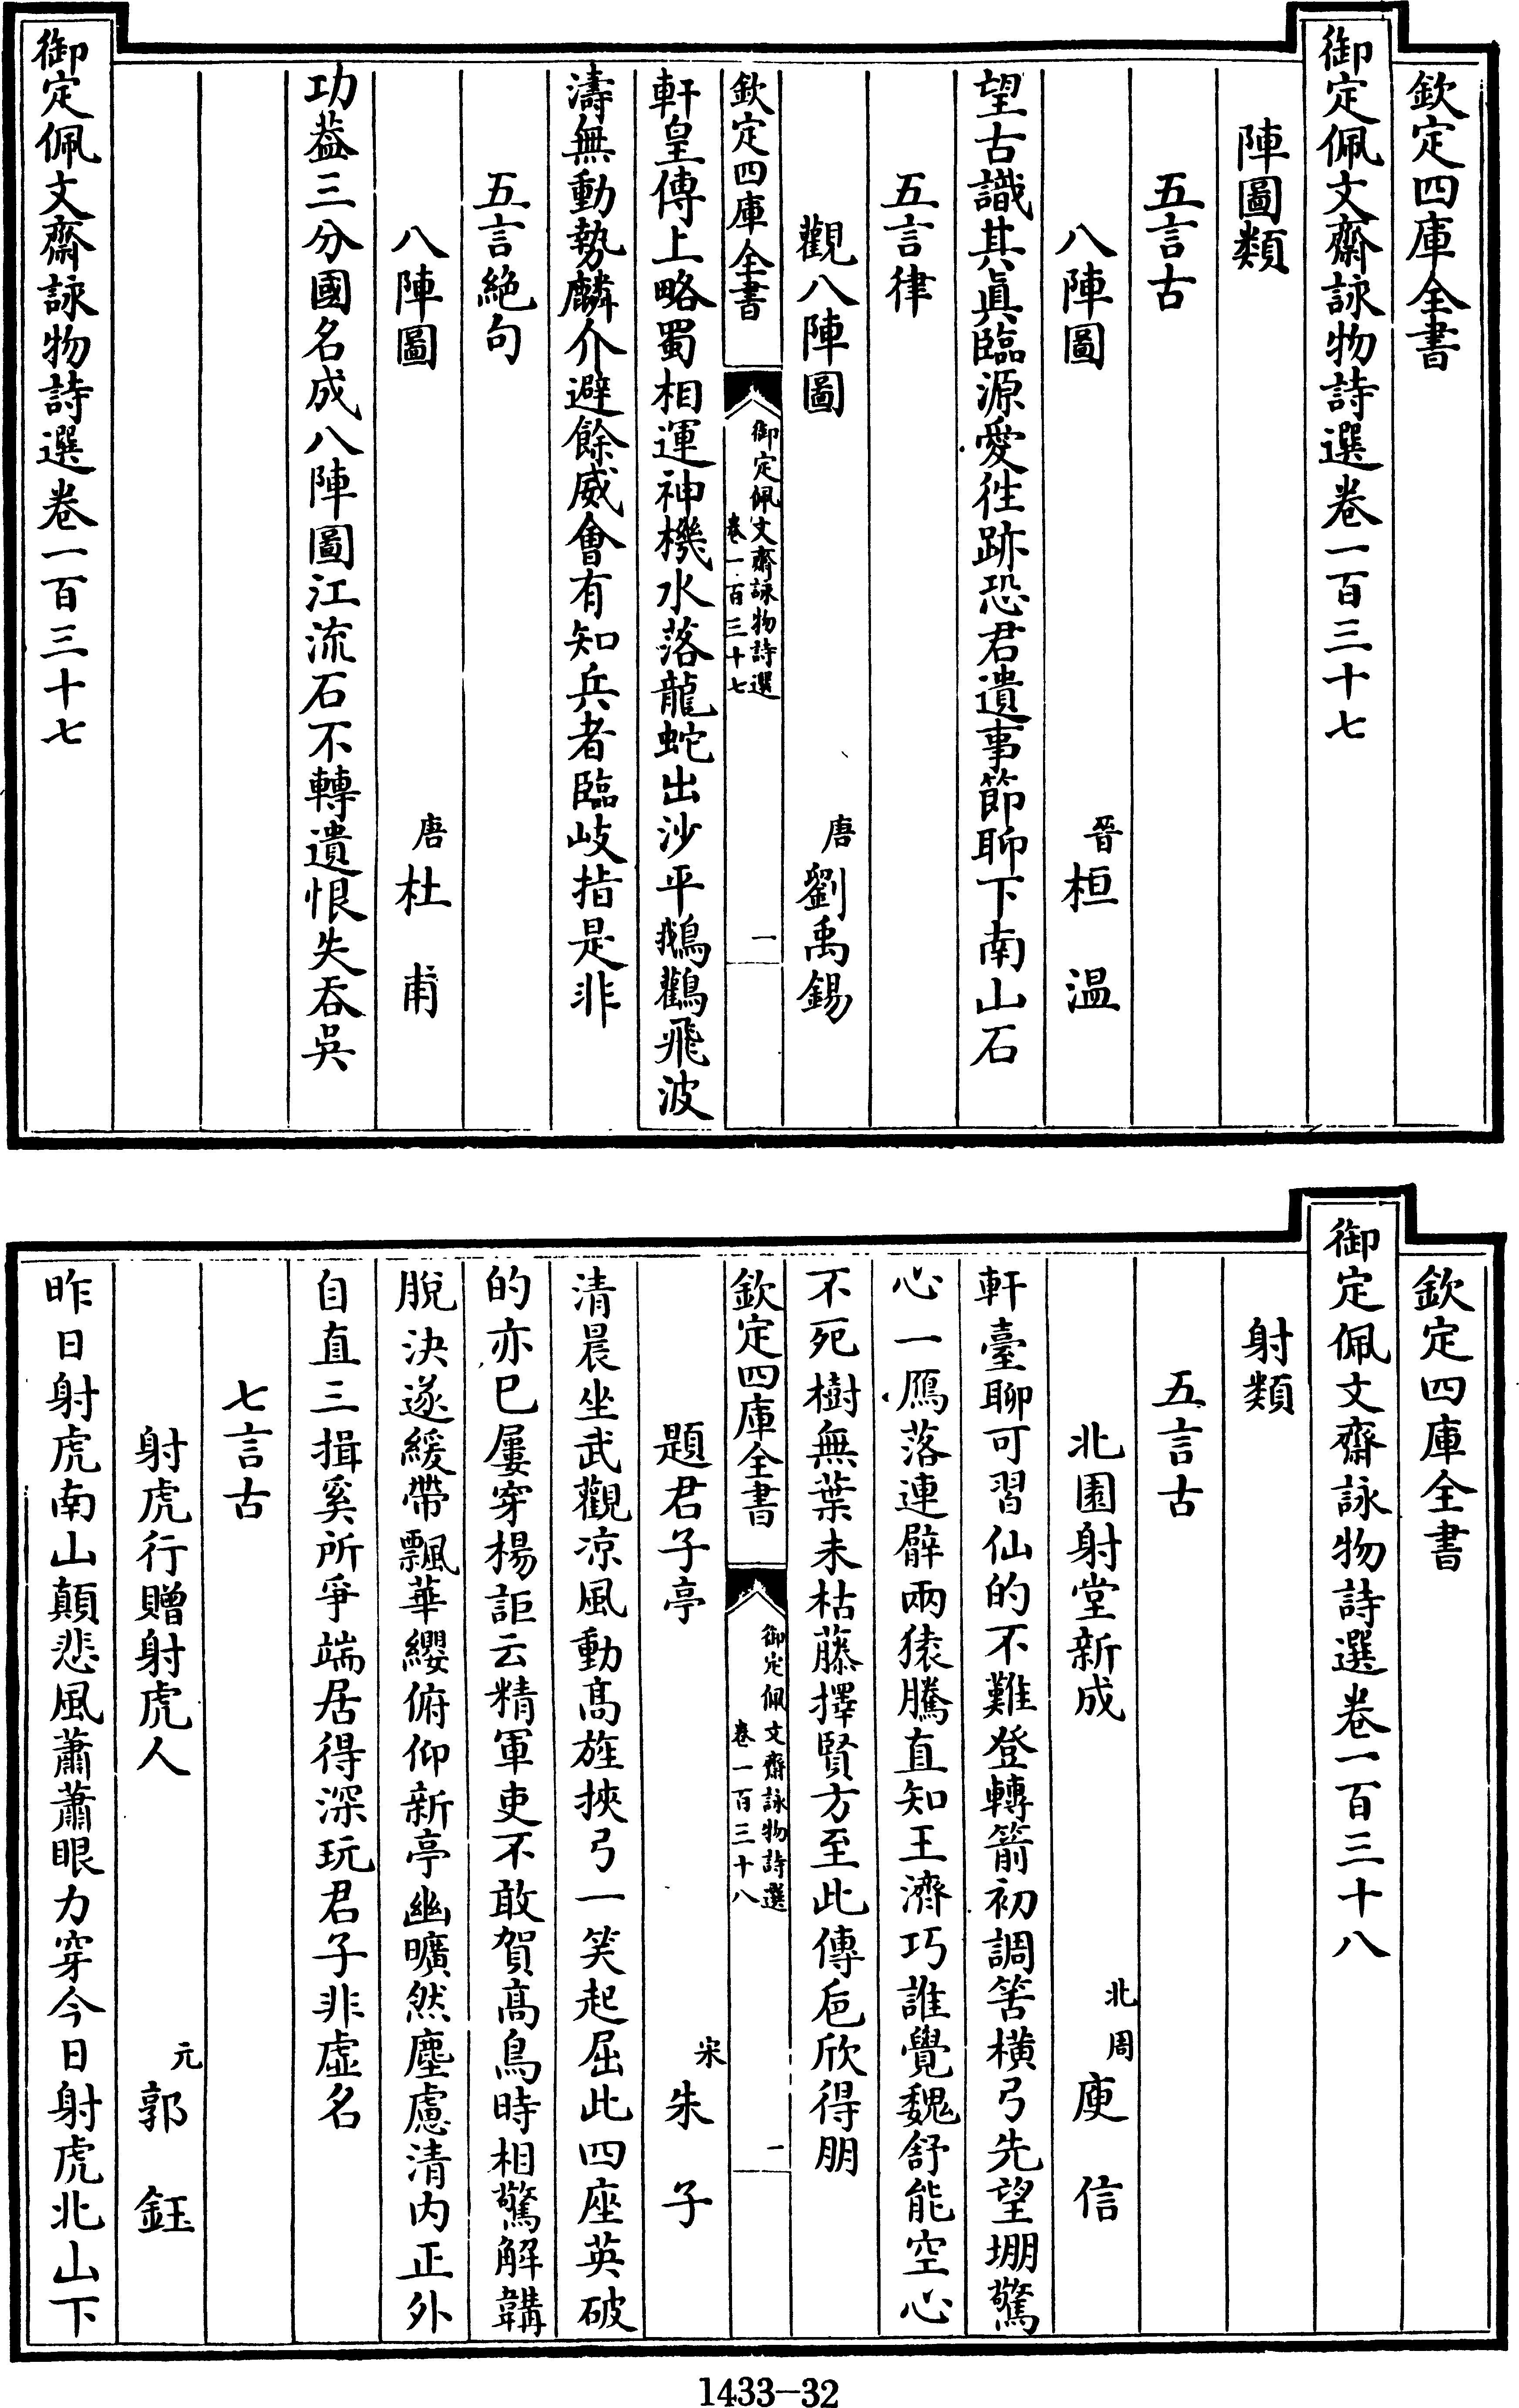 欽定四庫全書
御定佩文齋詠物詩選卷一百三十七
陣圖類
五言古
八陣圖　晉桓溫
望古識其眞臨源愛徃跡恐君遺事節聊下南山石
五言律
觀八陣圖　唐劉禹錫
欽定四庫全書　御定佩文齋詠物詩選　卷一百三十七　一
軒皇傳上略蜀相運神機水落龍蛇出沙平鵝鸛飛波
濤無動勢麟介避餘威會有知兵者臨岐指是非
五言絶句
八陣圖　唐杜甫
功葢三分國名成八陣圖江流石不轉遺恨失吞吳
御定佩文齋詠物詩選卷一百三十七
欽定四庫全書
御定佩文齋詠物詩選卷一百三十八
射類
五言古
北園射堂新成　北周庾信
軒臺聊可習仙的不難登轉箭初調筈横弓先望堋驚
心一鴈落連臂兩猿騰直知王濟巧誰覺魏舒能空心
不死樹無葉未枯藤擇賢方至此傳巵欣得朋
欽定四庫全書　御定佩文齋詠物詩選　卷一百三十八　一
題君子亭　宋朱子
清晨坐武觀凉風動髙旌挾弓一笑起屈此四座英破
的亦已屢穿楊詎云精軍吏不敢賀髙鳥時相驚解韝
脫決遂緩帶飄華纓俯仰新亭幽曠然塵慮清内正外
自直三揖奚所爭端居得深玩君子非虛名
七言古
射虎行贈射虎人　元郭鈺
昨日射虎南山顛悲風蕭蕭眼力穿今日射虎北山下
1433-32